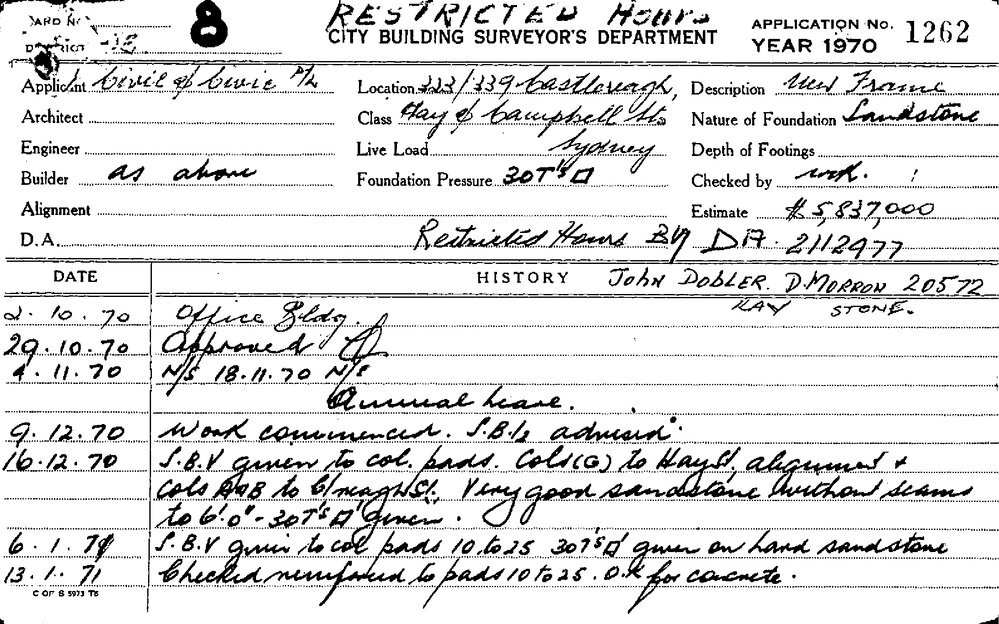 RESTRICTED HOURS
CITY BUILDING SURVEYOR'S DEPARTMENT
CARD No
DISTRICT
8
APPLICATION No. 1262
YEAR 1970
Applicant Civil & Civic P/L
Location 323/339 Castlereagh,
Description New Frame
Architect
Class Hay & Campbell Sts
Nature of Foundation Sandstone
Engineer
Live Load Sydney
Depth of Footings
Builder as above
Foundation Pressure 30T's □
Checked by
Alignment
Estimate $5,837,000
D.A. Restricted Hours By DA. 2112977
DATE
HISTORY JOHN DOBLER. D. MORRON 20572
KAY STONE.
2. 10. 70 Office Bldg.
29. 10. 70 Approved
4. 11. 70 N/S 18.11.70 N/S
Annual leave.
9. 12. 70 Work commenced. S.B.I. advised.
16. 12. 70 S.B.V given to col. pads. Cols (G) to Hay St, alignment +
cols A&B to C'reagh St. Very good sandstone without seams
to 6'.0" - 30T's □' given.
6. 1. 71 S.B.V given to col pads 10 to 25 30T's □' given on hard sandstone
13. 1. 71 Checked to pads 10 to 25. O.K for concrete.
C OF S 5973 T6